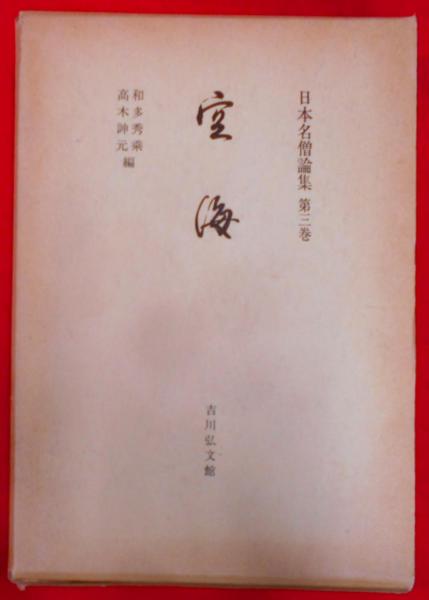 日本名僧論集 第三巻
空海
和多秀乘
高木訷元 編
吉川弘文館